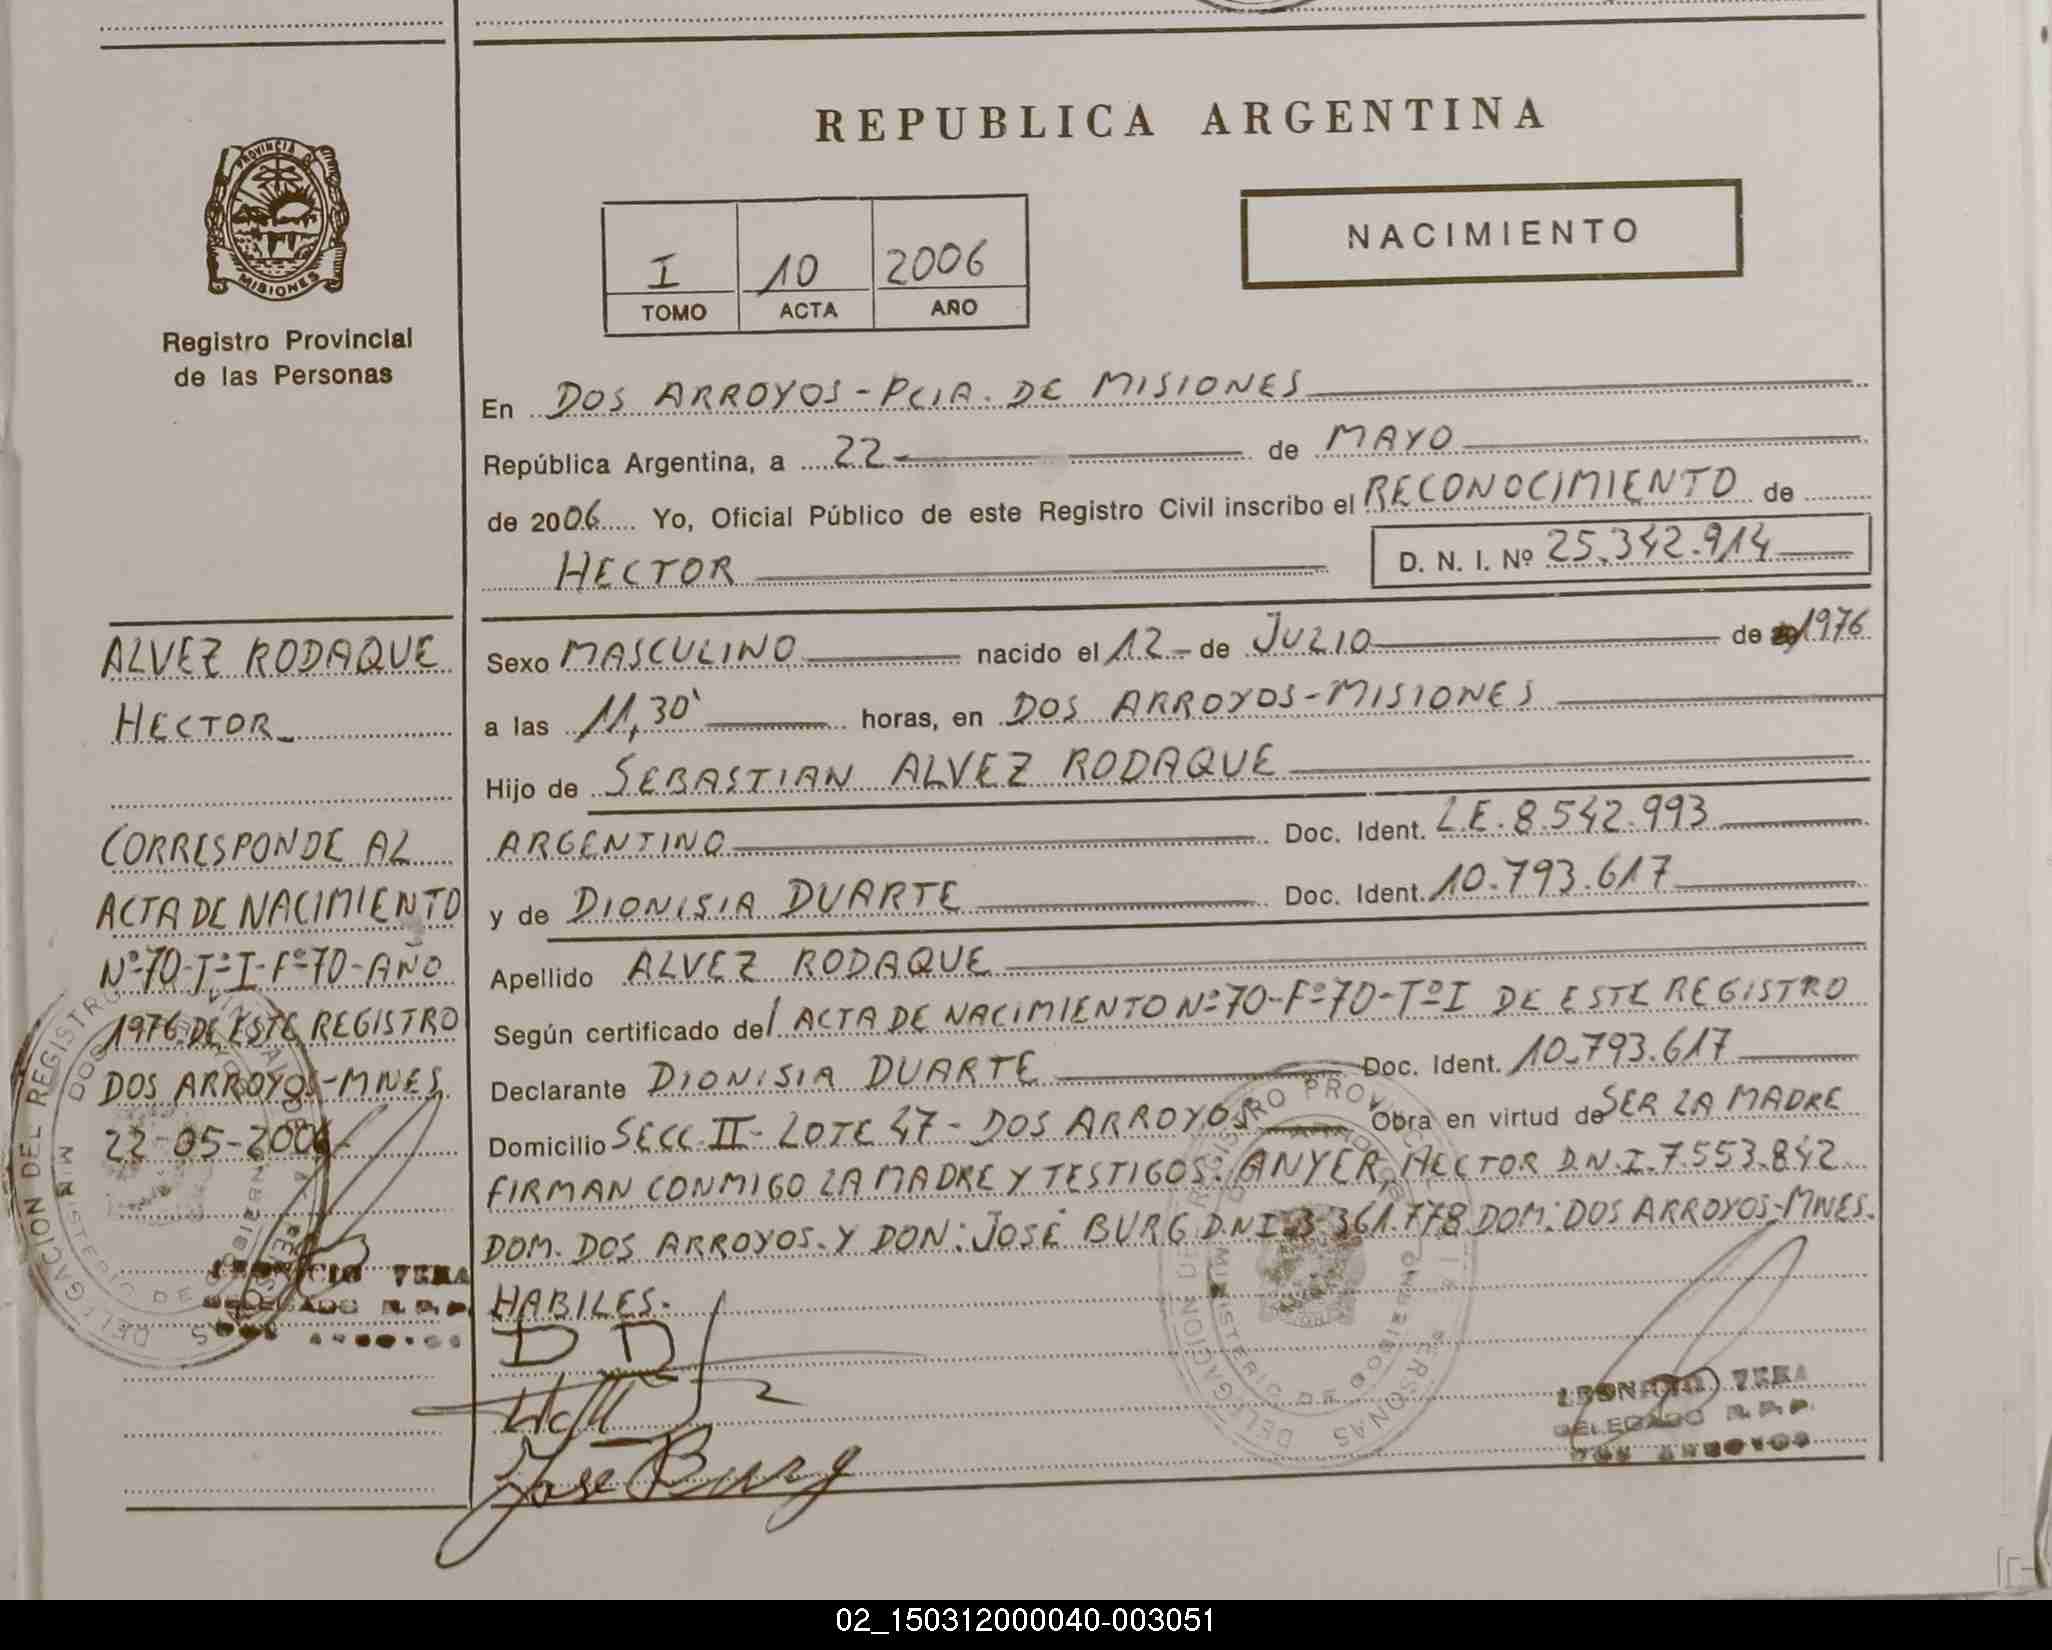 REPUBLICA ARGENTINA
NACIMIENTO
I 10 2006
TOMO ACTA AÑO
PROVINCIA DE
MISIONES
Registro Provincial
de las Personas
En DOS ARROYOS - PCIA. DE MISIONES
República Argentina, a 22 de MAYO
de 2006 Yo, Oficial Público de este Registro Civil inscribo el RECONOCIMIENTO de
HECTOR D. N. I. Nº 25.342.914
Sexo MASCULINO nacido el 12 de JULIO de 1976
a las 11,30' horas, en DOS ARROYOS-MISIONES
Hijo de SEBASTIAN ALVEZ RODAQUE
ARGENTINO Doc. Ident. L.E. 8.542.993
y de DIONISIA DUARTE Doc. Ident. 10.793.617
Apellido ALVEZ RODAQUE
Según certificado del ACTA DE NACIMIENTO Nº70-Fº70-TºI DE ESTE REGISTRO
Declarante DIONISIA DUARTE Doc. Ident. 10.793.617
Domicilio SECC. II - LOTE 47 - DOS ARROYOS Obra en virtud de SER LA MADRE
FIRMAN CONMIGO LA MADRE Y TESTIGOS: ANYER, HECTOR D.N.I. 7.553.842
DOM. DOS ARROYOS. Y DON: JOSÉ BURG D.N.I. 3.361.778 DOM: DOS ARROYOS-MNES.
HABILES.
D D
Jose Burg
LEONICIO VERA
DELEGADO R.P.P.
DOS ARROYOS
ALVEZ RODAQUE
HECTOR
CORRESPONDE AL
ACTA DE NACIMIENTO
Nº70-TºI-Fº70-AÑO
1976 DE ESTE REGISTRO
DOS ARROYOS-MNES
22-05-2006
LEONICIO VERA
DELEGADO R.P.P.
DOS ARROYOS
02_150312000040-003051